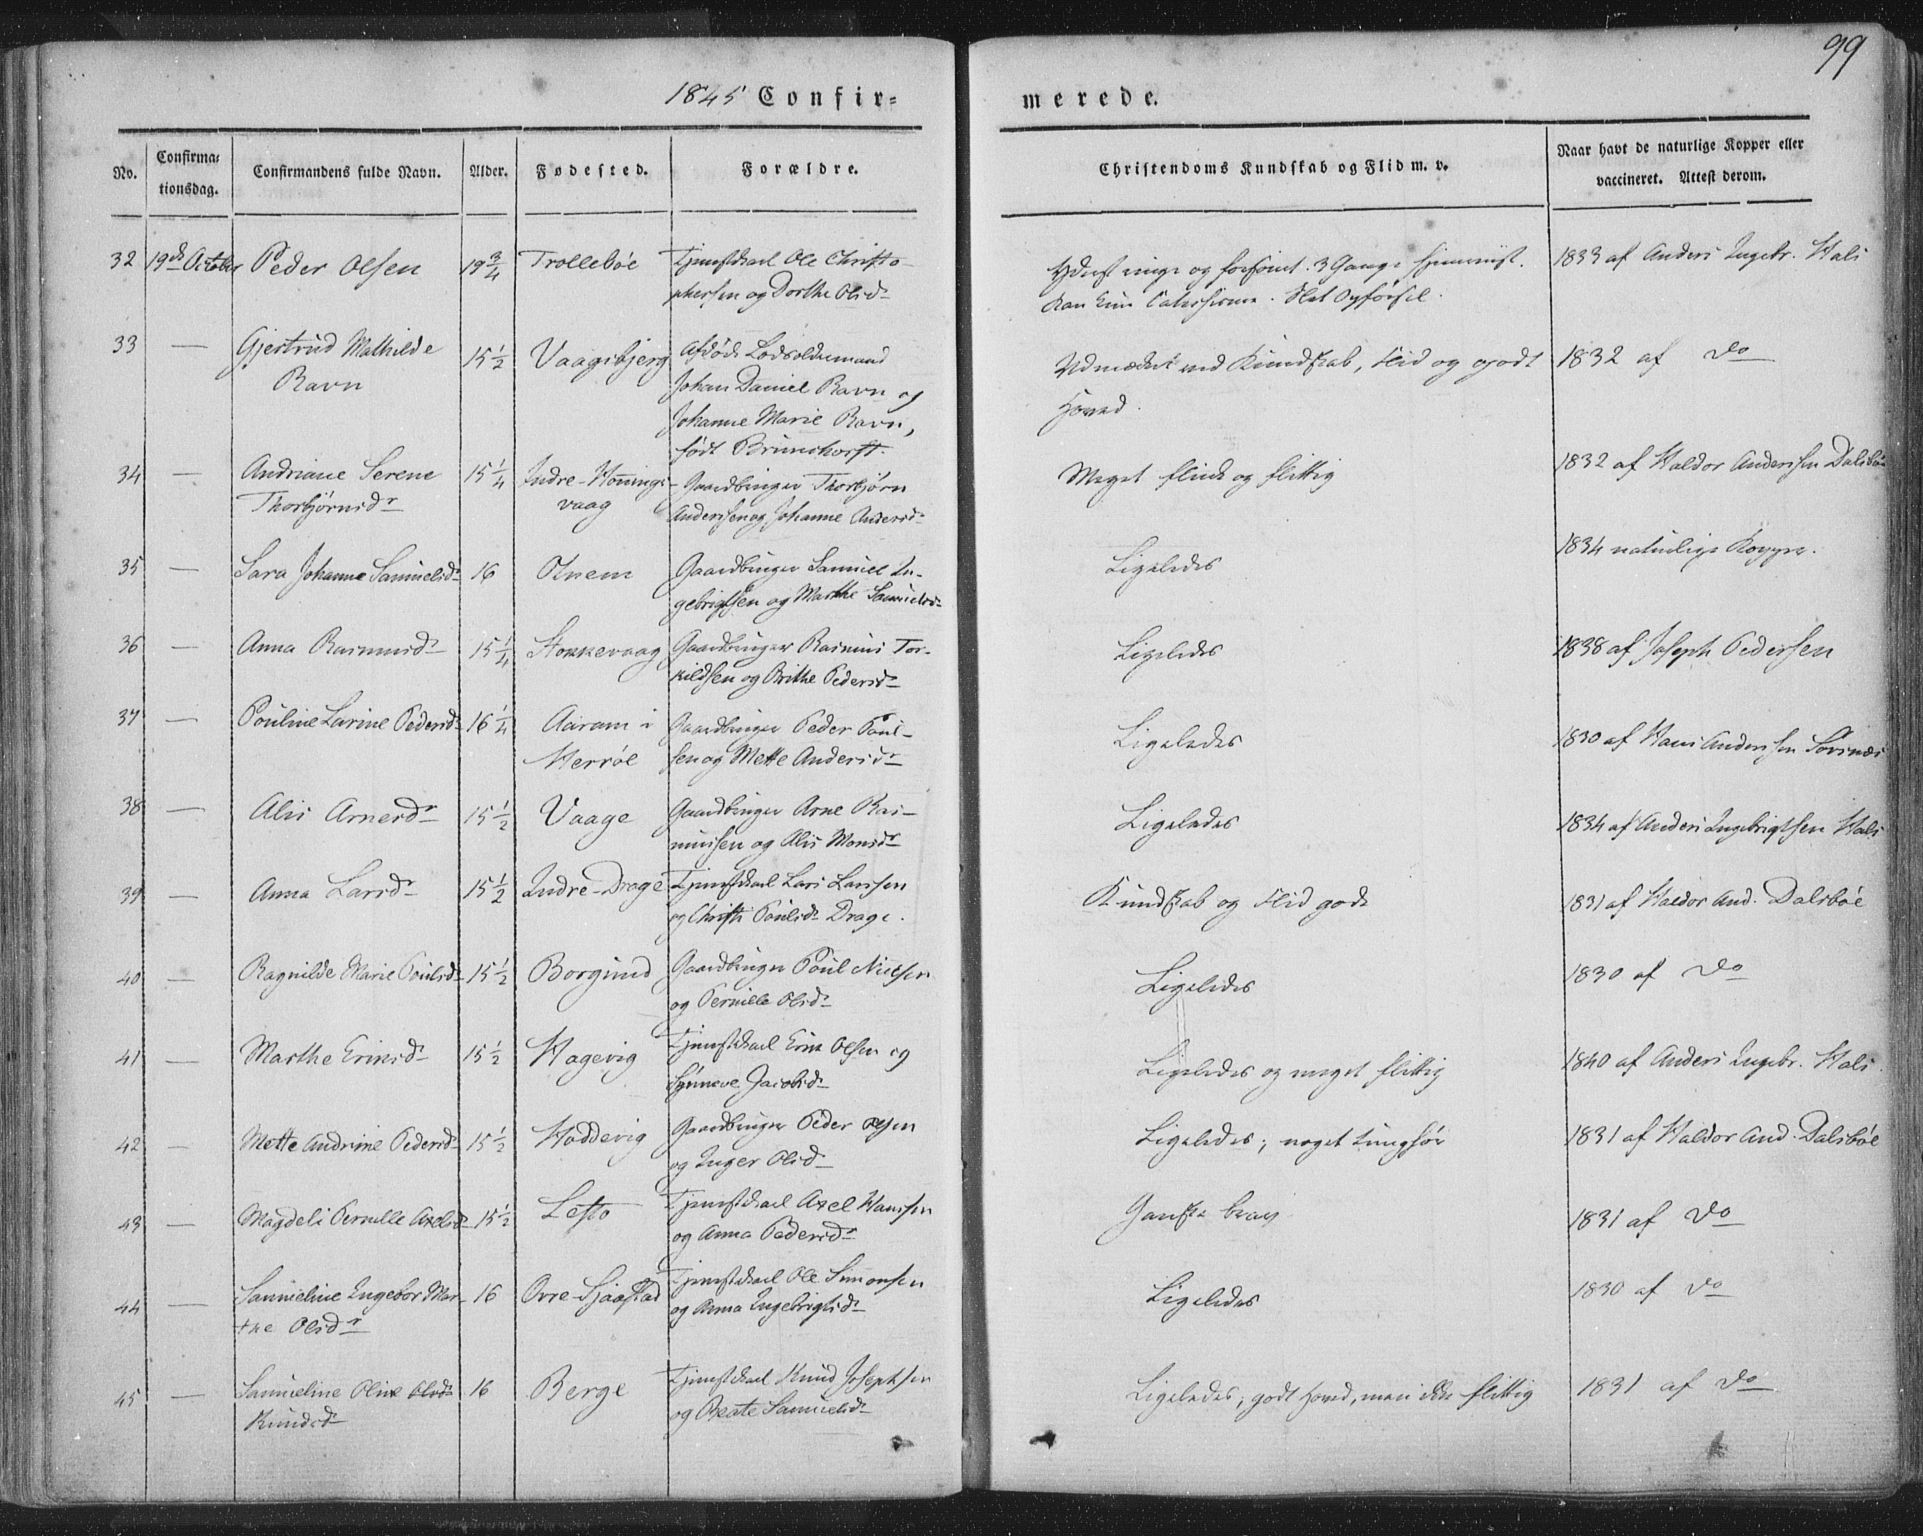 99
1845 Confir-
merede.
No. Confirma-tionsdag. Confirmandens fulde Navn. Alder. Fødested. Forældre. Christendoms Kundskab og Flid m. v. Naar havt de naturlige Kopper eller vaccineret. Attest derom.
32 19de October Peder Olsen 19 3/4 Trollebøe Tjenestekarl Ole Christo-
phersen og Dorthe Olsdr
Yderst ringe og forsømt. 3 Gange hjemviist.
Kan kun Catechismen. Slet Opførsel.
1833 af Anders Ingebr. Hals
33 — Gjertrud Mathilde
Ravn
15 1/2 Vaagsbjerg Afdøde Lodsoldermand
Johan Daniel Ravn og
Johanne Marie Ravn,
født Brunchorst.
Udmærket ved Kundskab, Flid og godt
Hoved.
1832 af do
34 — Andriane Serene
Thorbjørnsdr
15 1/4 Indre-Honings-
vaag
Gaardbruger Thorbjørn
Anderssen og Johanne Andersdr
Meget flink og flittig
1832 af Haldor Anderssen Dalsbøe
35 — Sara Johanne Samuelsdr 16 Otnem Gaardbruger Samuel In-
gebrigtsen og Marthe Samuelsdr
Ligeledes
1834 naturlige Kopper.
36 — Anna Rasmusdr 15 1/4 Stokkevaag Gaardbruger Rasmus Tor-
kildsen og Brithe Pedersdr
Ligeledes
1838 af Joseph Pedersen
37 — Pouline Larine Pedersdr 16 1/4 Aaram i
Herrøe
Gaardbruger Peder Poul-
sen og Mette Andersdr
Ligeledes
1830 af Hans Anderssen Sørnæs
38 — Alis Arnesdr 15 1/2 Vaage Gaardbruger Arne Ras-
mussen og Alis Monsdr
Ligeledes
1834 af Anders Ingebrigtsen Hals
39 — Anna Larsdr 15 1/2 Indre-Drage Tjenestekarl Lars Larssen
og Christi Poulsdr Drage.
Kundskab og Flid gode
1831 af Haldor And. Dalsbøe
40 — Ragnilde Marie Poulsdr 15 1/2 Borgund Gaardbruger Poul Nielsen
og Pernille Olsdr
Ligeledes
1830 af do
41 — Marthe Eriksdr 15 1/2 Hagevig Tjenestekarl Erik Olsen og
Synneve Jacobsdr
Ligeledes og meget flittig
1840 af Anders Ingebr. Hals.
42 — Mette Andrine Pedersdr 15 1/2 Hoddevig Gaardbruger Peder
og Inger Olsdr
Ligeledes; noget tunghør
1831 af Haldor And. Dalsbøe
43 — Magdeli Pernille Axelsdr 15 1/2 Lesto Tjenestekarl Axel Hanssen
og Anna Pedersdr
Ganske brav
1831 af do
44 — Samueline Ingebor Mar-
the Olsdr
16 Øvre-Sjaastad Tjenestekarl Ole Simonsen
og Anna Ingebrigtsdr
Ligeledes
1830 af do
45 — Samueline Oline Olsdr
Knudsdr
16 Berge Tjenestekarl Knud Josephsen
og Beate Samuelsdr
Ligeledes; godt Hoved, men ikke flittig
1831 af do